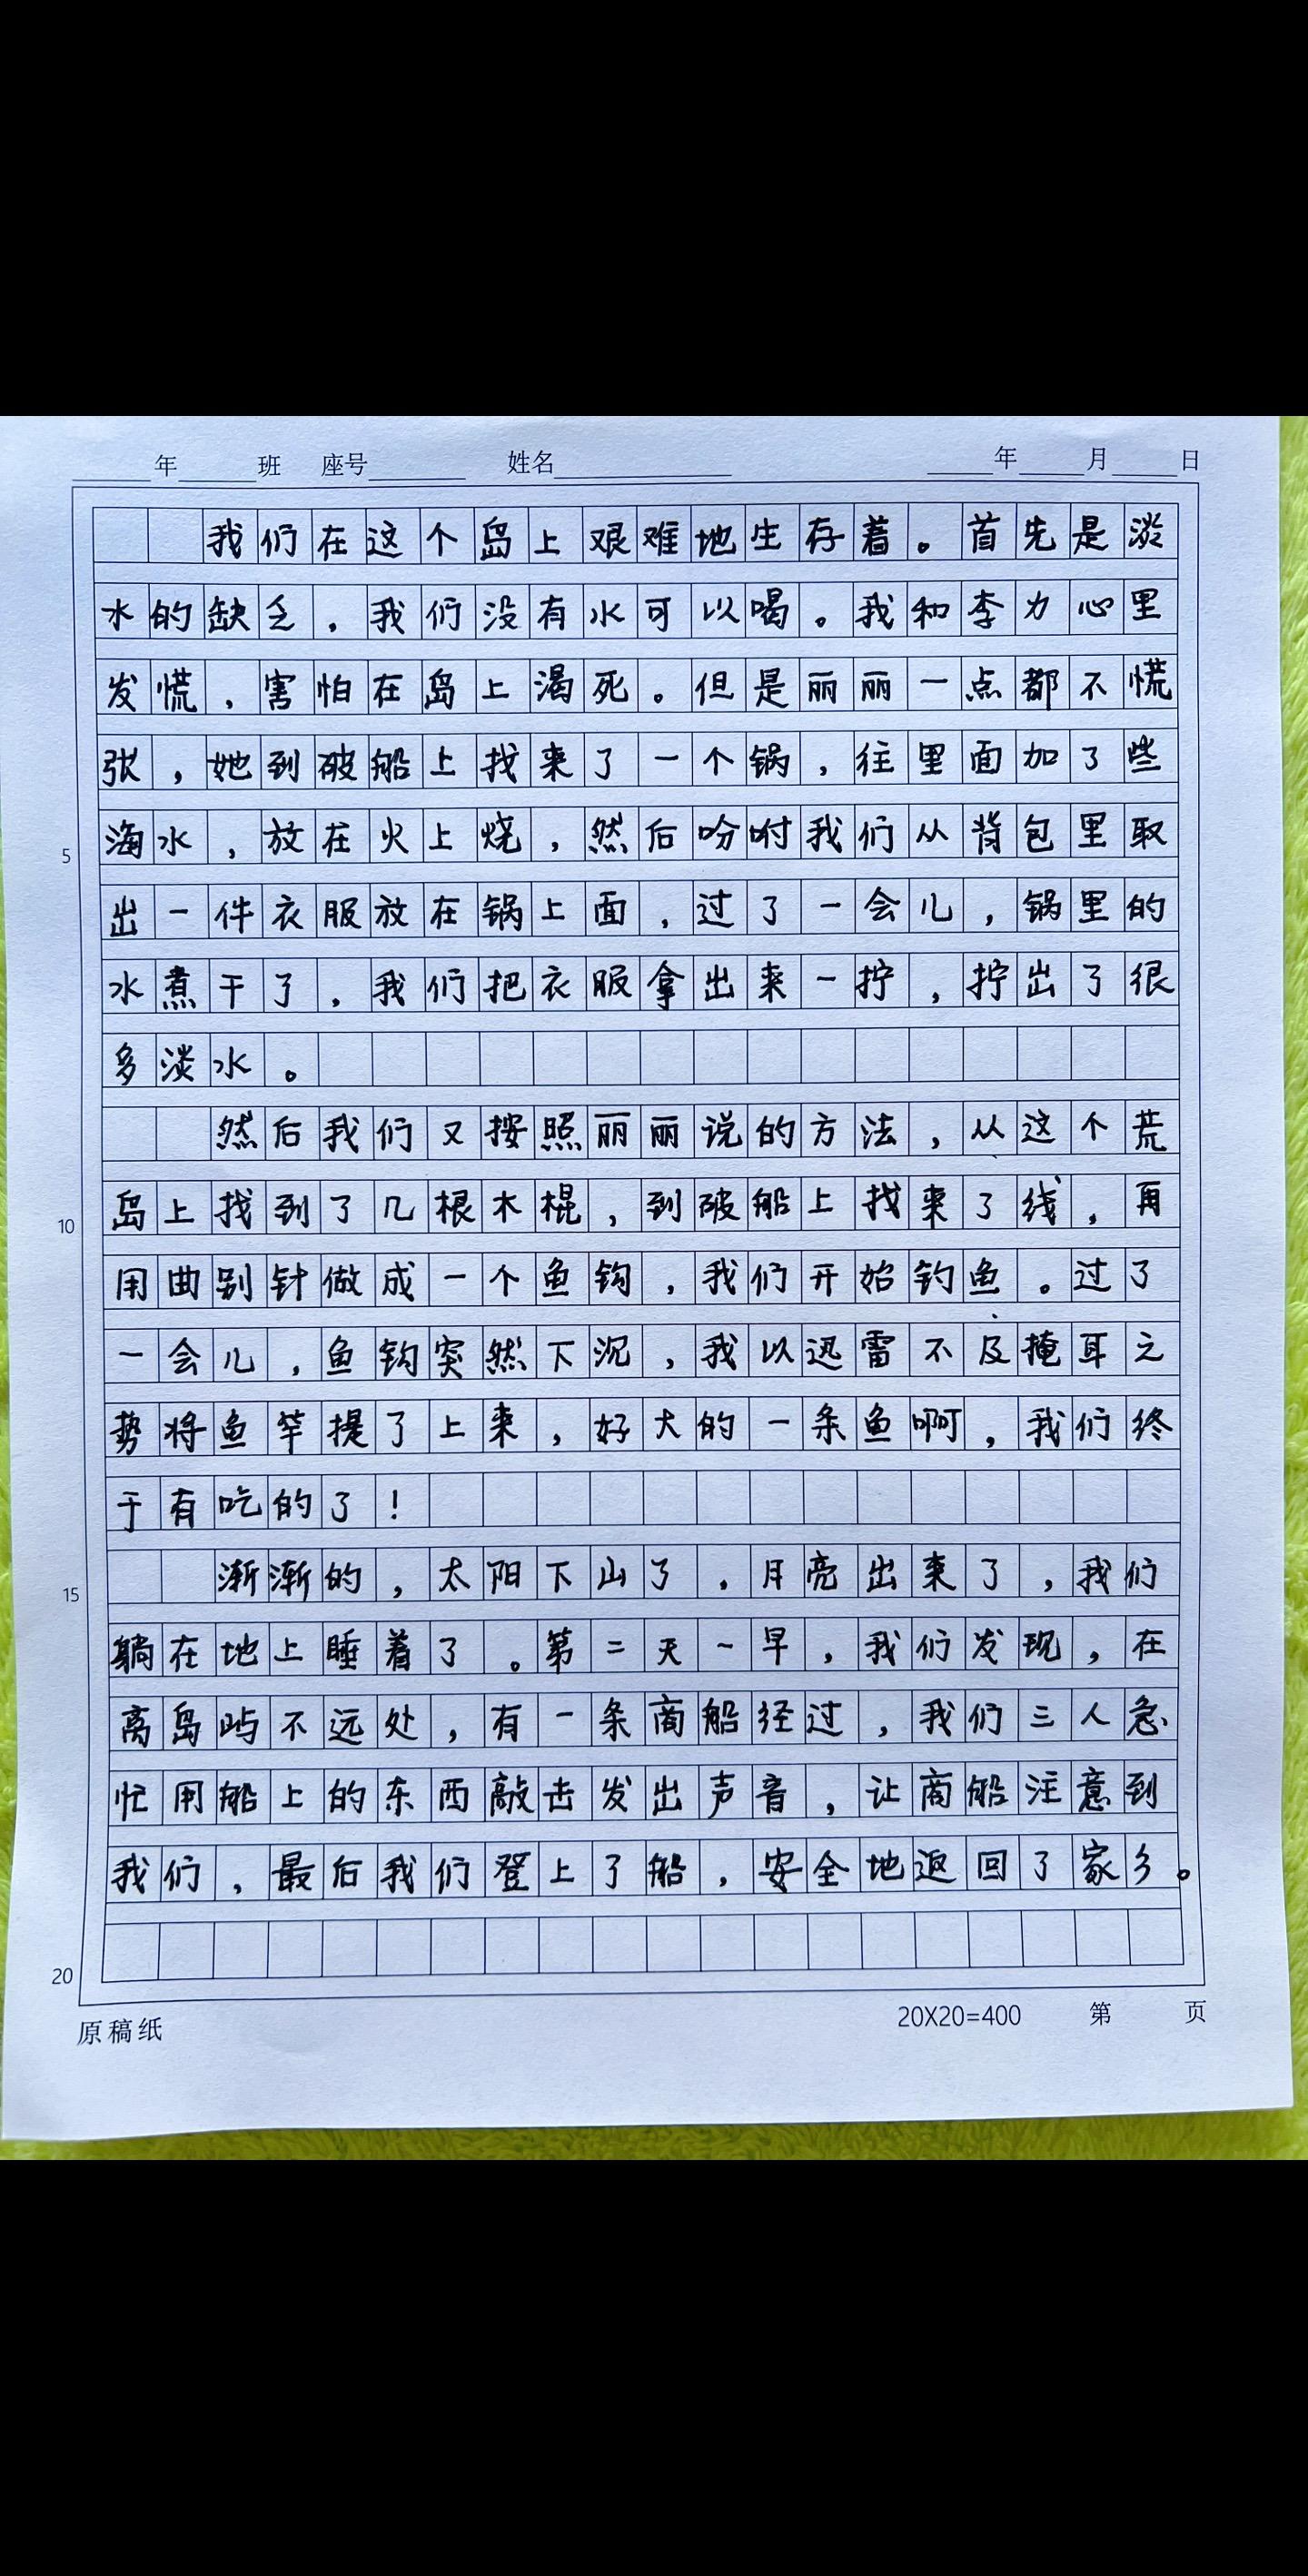 ____年____班 座号______ 姓名____________ ____年____月____日
我们在这个岛上艰难地生存着。首先是淡
水的缺乏，我们没有水可以喝。我和李力心里
发慌，害怕在岛上渴死。但是丽丽一点都不慌
张，她到破船上找来了一个锅，往里面加了些
海水，放在火上烧，然后吩咐我们从背包里取
5
出一件衣服放在锅上面，过了一会儿，锅里的
水煮干了，我们把衣服拿出来一拧，拧出了很
多淡水。
然后我们又按照丽丽说的方法，从这个荒
岛上找到了几根木棍，到破船上找来了线，再
10
用曲别针做成一个鱼钩，我们开始钓鱼。过了
一会儿，鱼钩突然下沉，我以迅雷不及掩耳之
势将鱼竿提了上来，好大的一条鱼啊，我们终
于有吃的了！
渐渐的，太阳下山了，月亮出来了，我们
15
躺在地上睡着了。第二天一早，我们发现，在
离岛屿不远处，有一条商船经过，我们三人急
忙用船上的东西敲击发出声音，让商船注意到
我们，最后我们登上了船，安全地返回了家乡。
20
原稿纸 20X20=400 第 页